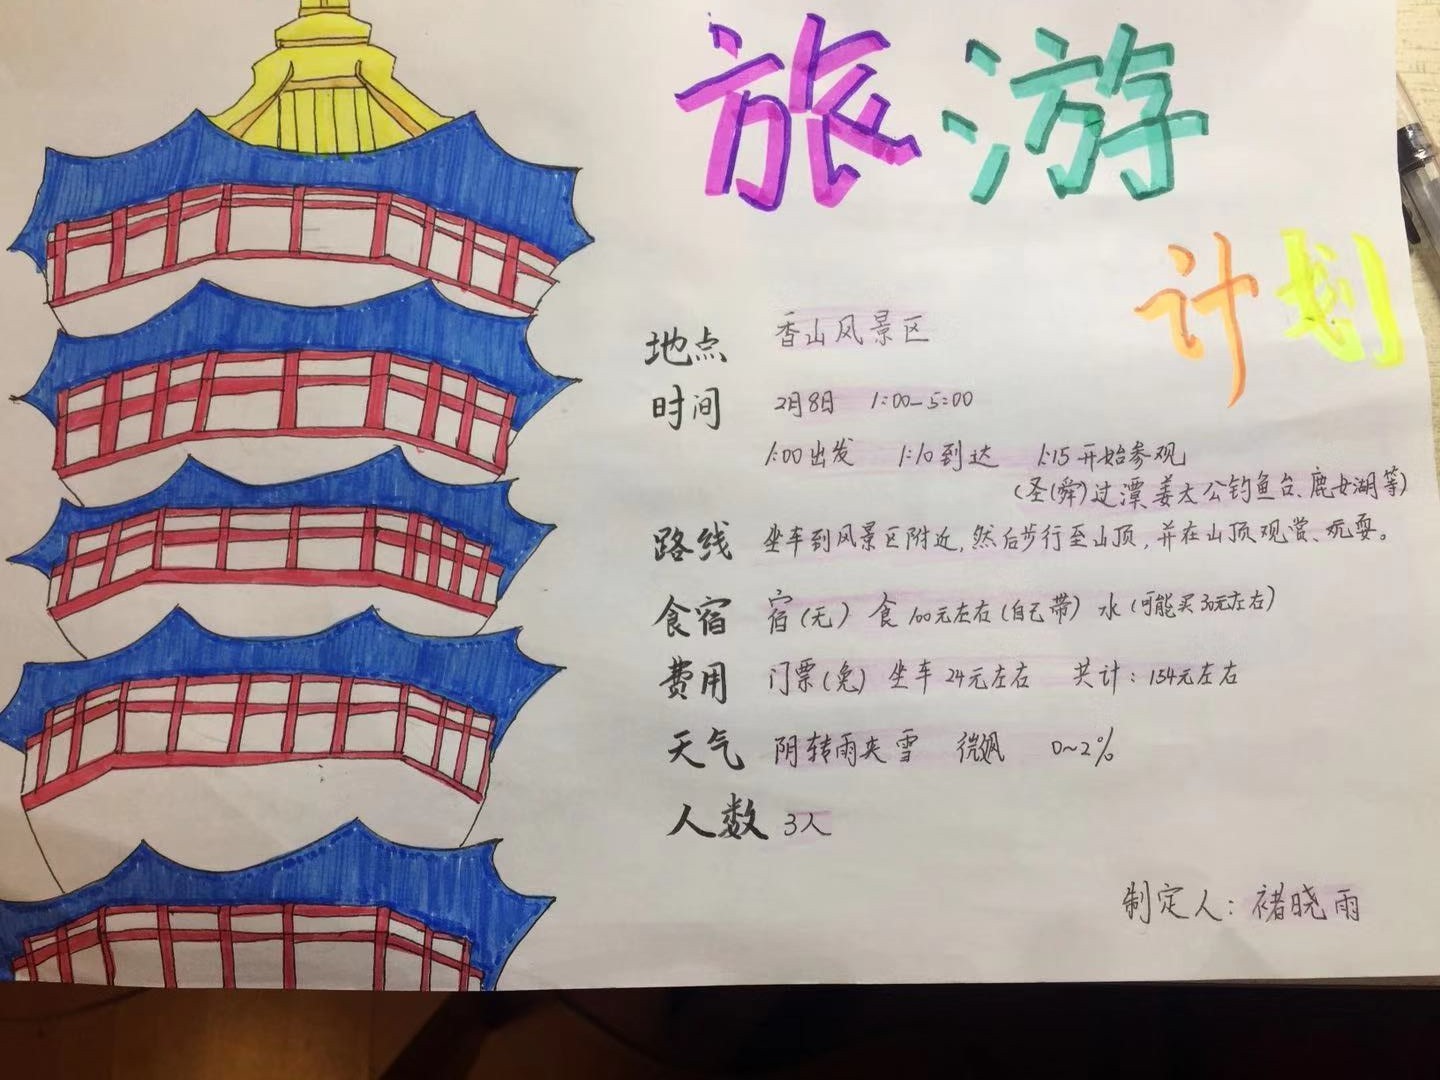 旅游
计划
地点 香山风景区
时间 2月8日 1:00-5:00
1:00出发 1:10到达 1:15开始参观
(圣(舜)过潭 姜太公钓鱼台、鹿女湖等)
路线 坐车到风景区附近,然后步行至山顶,并在山顶观赏、玩耍。
食宿 宿(无) 食100元左右(自己带) 水(可能买30元左右)
费用 门票(免) 坐车24元左右 共计:154元左右
天气 阴转雨夹雪 微风 0~2℃
人数 3人
制定人:褚晓雨